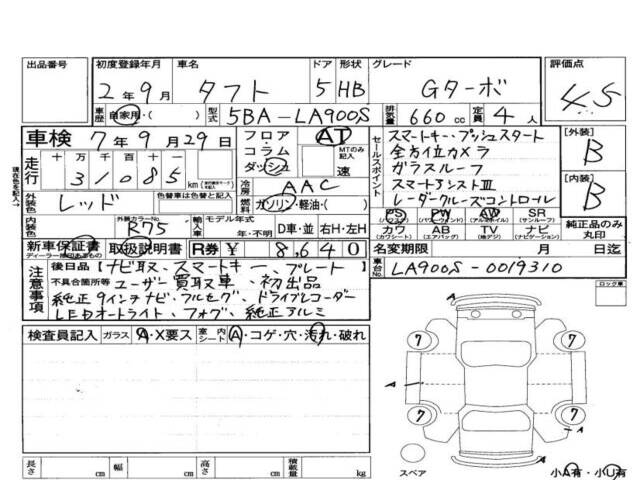 出品番号 初度登録年月 車名 ドア 形状 グレード 評価点
2年9月 タフト 5 HB Gターボ 4.5
車歴 自家用・( ) 型式 5BA-LA900S 排気量 660cc 定員 4人
車検 7年9月29日 フロア AT セールスポイント スマートキー・プッシュスタート [外装]
コラム MTのみ記入 全方位カメラ B
走行 十万 万 千 百 十 一 ダッシュ 速 ガラスルーフ
31085 km 冷房 AAC スマートアシストⅢ [内装]
現在色を記入→ 外装色 レッド 色替車は色替と記入 燃料 ガソリン・軽油・( ) レーダークルーズコントロール B
内装色 外装カラーNo. R75 輸入車 モデル年式 D車・並 右H・左H PS (パワステ) PW (パワーウィンドウ) AW (アルミホイル) SR (サンルーフ)
年・不明 カワ (本皮シート) AB (エアバッグ) TV (地デジ) ナビ (ナビゲーション) 純正品のみ丸印
新車保証書 取扱説明書 R券 ¥ 8,640 名変期限 月 日迄
ディーラー捺印あるもの
車台No. LA900S-0019310
注意事項 後日品【ナビ取、スマートキー、プレート】
不具合箇所等 ユーザー買取車、初出品 ロック車
純正9インチナビ・フルセグ、ドライブレコーダー
LEDオートライト、フォグ、純正アルミ
検査員記入 ガラス A・X要ス 室内 シート A・コゲ・穴・汚れ・破れ
7 7
A
7 7
A
長さ cm 幅 cm 高さ cm 積載量 kg スペア 小A有・小U有